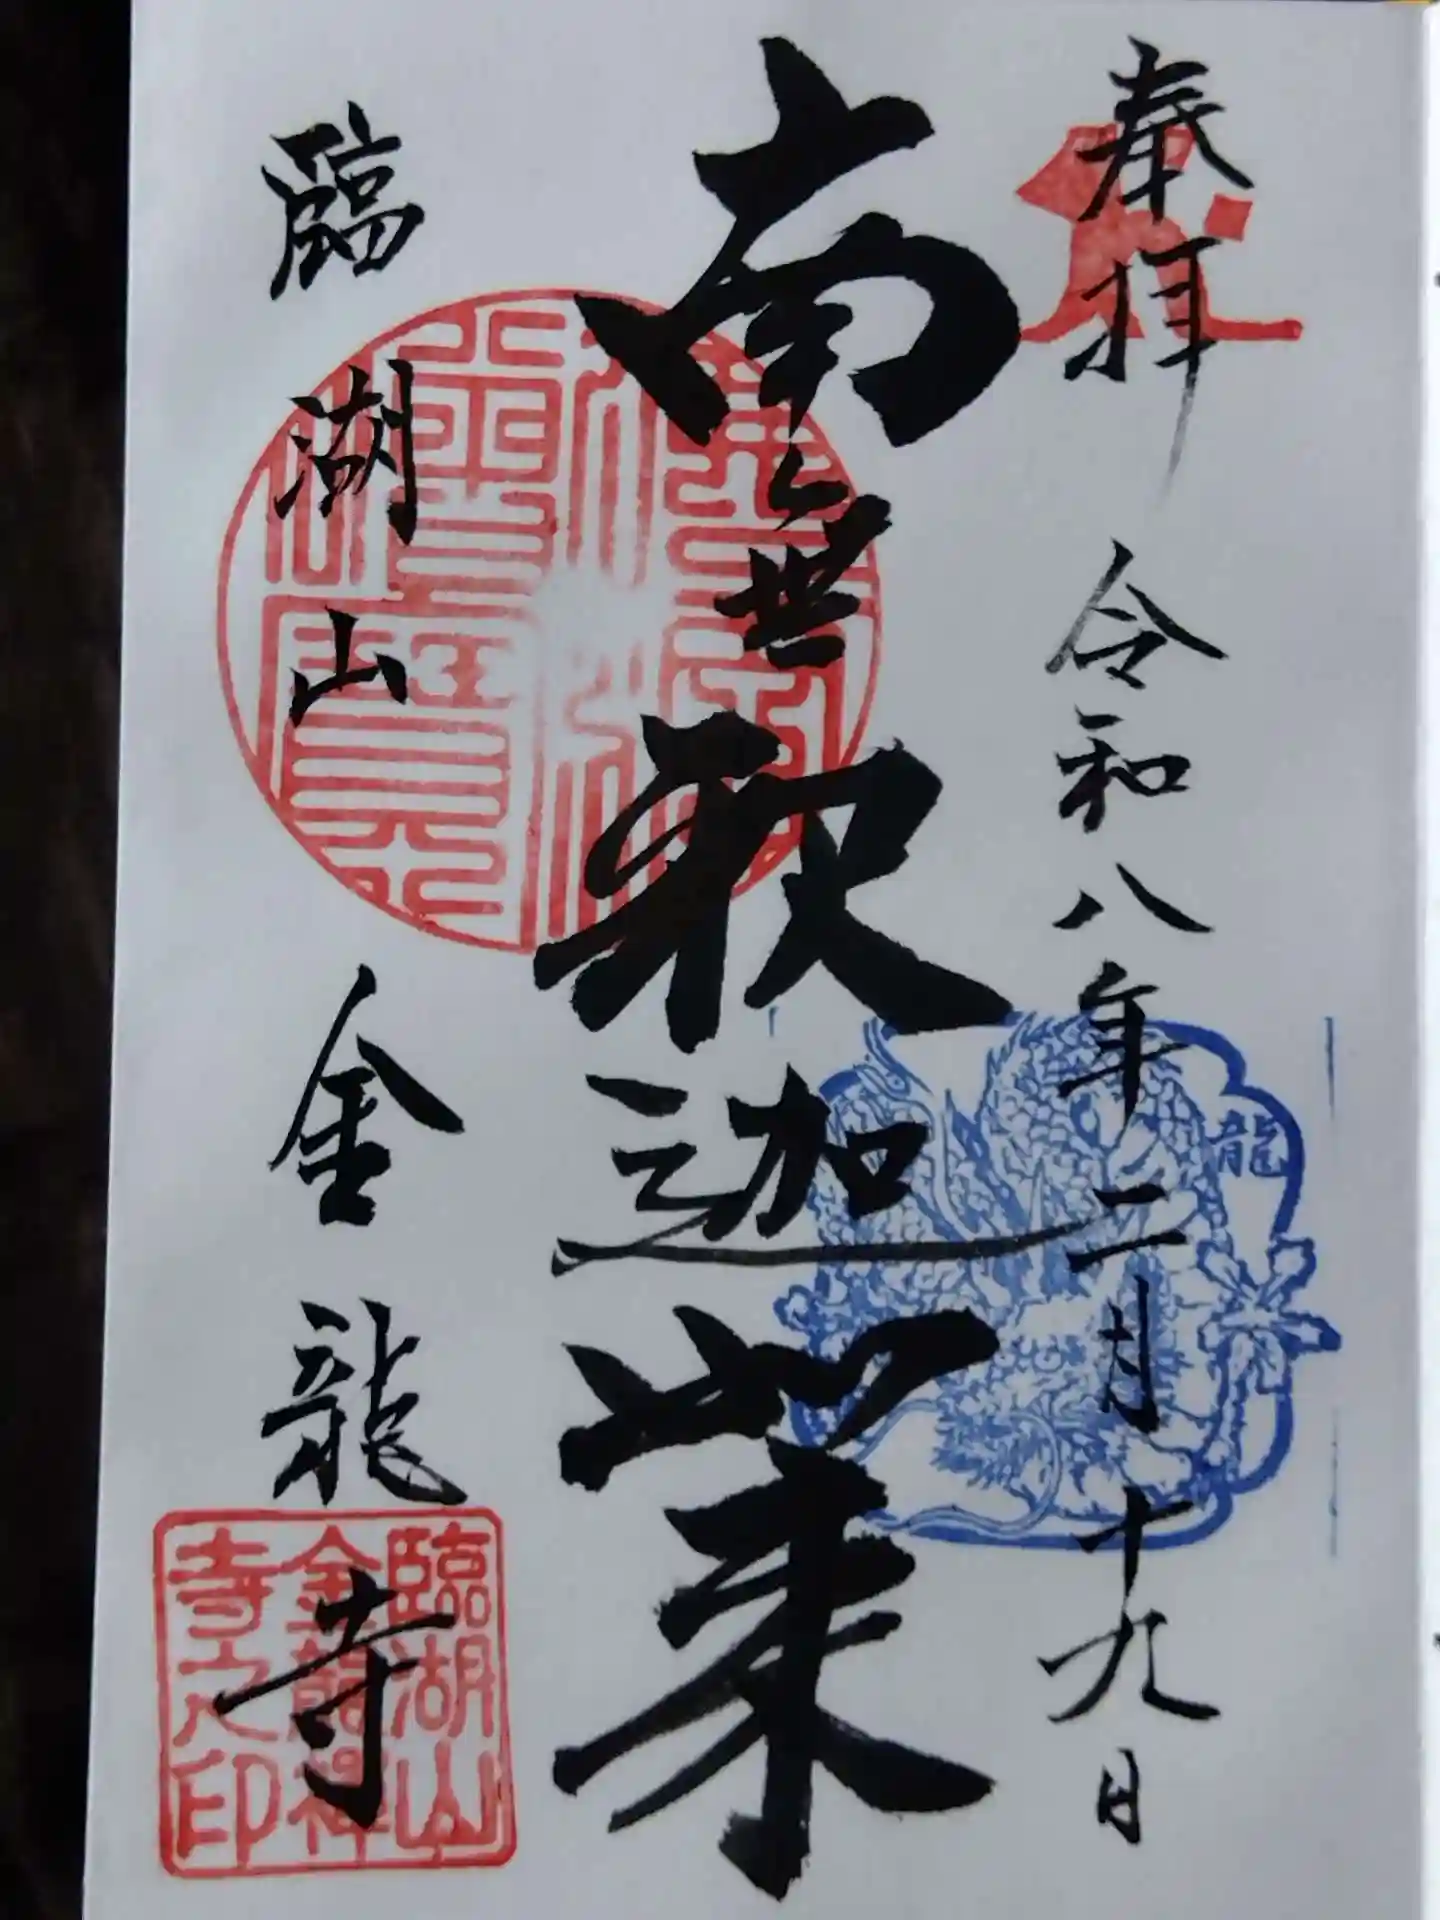 奉拝 令和八年二月十九日
南無釈迦如来
臨湖山 金龍寺
佛法僧寶
龍
臨湖山
金龍禅
寺之印